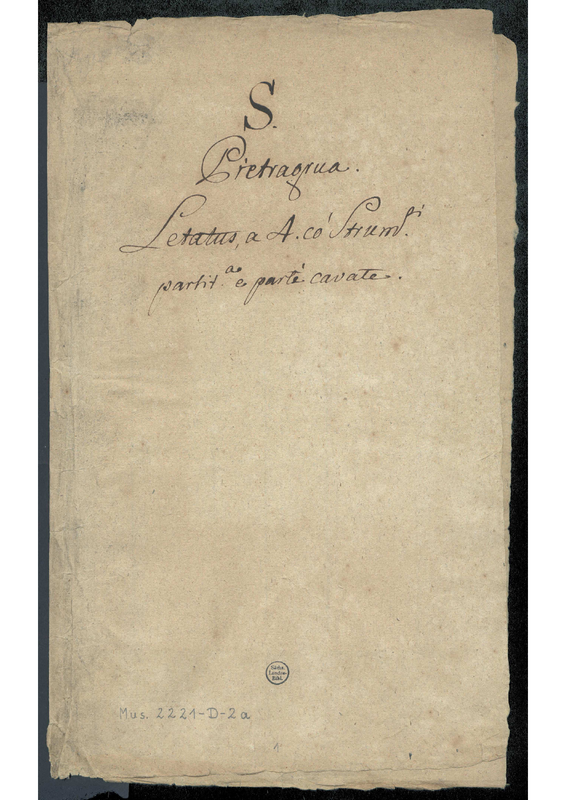 S.
Pietragrua.
Letatus, a 4. có Strum.ti
partit.a e parté cavate.
Sächs.
Landes-
Bibl.
Mus. 2221-D-2a
1